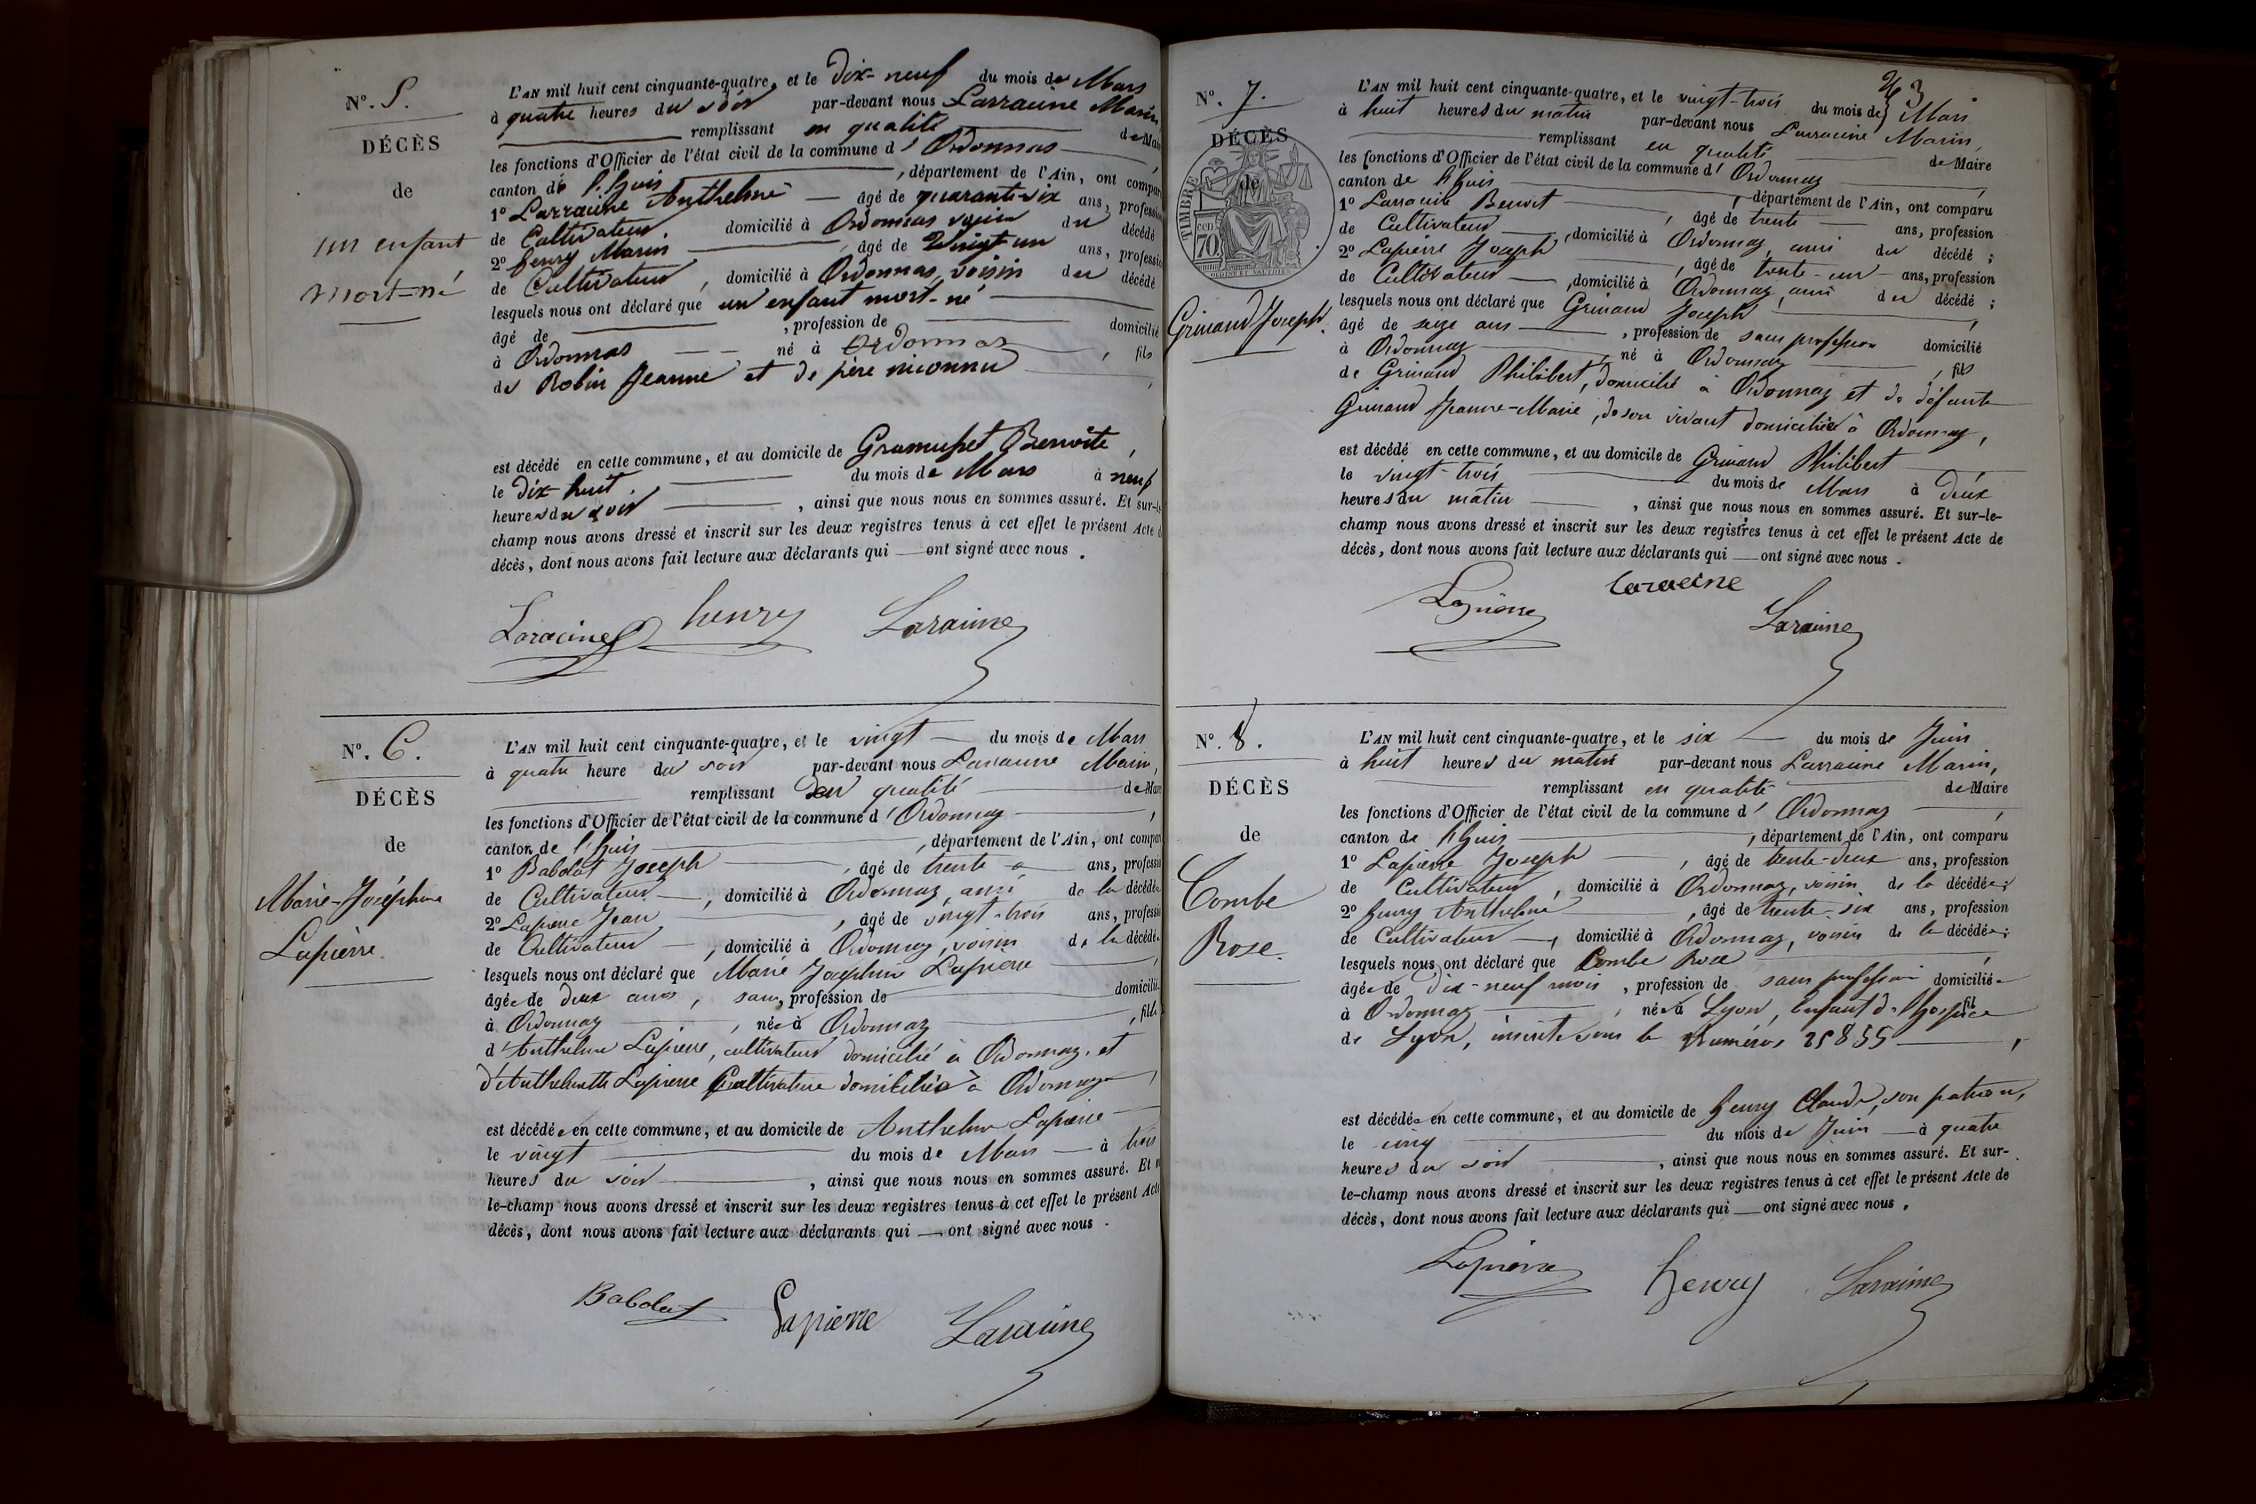 N°. 5.
DÉCÈS
de
un enfant
mort-né
L'AN mil huit cent cinquante-quatre, et le Dix-neuf du mois de Mars
à quatre heures du soir par-devant nous Larracine Marin
remplissant en qualité de Mai
les fonctions d'Officier de l'état civil de la commune d' Ordonnas
canton de l'huis, département de l'Ain, ont compar
1° Larracine Anthelme âgé de quarante-six ans, professio
de Cultivateur domicilié à Ordonnas voisin du décédé
2° henry Marin âgé de Vingt-un ans, professio
de Cultivateur, domicilié à Ordonnas, voisin du décédé
lesquels nous ont déclaré que un enfant mort-né
âgé de, profession de domicilié
à Ordonnas né à Ordonnas, fils
de Robin Jeanne et de père inconnu
est décédé en cette commune, et au domicile de Benoîte,
le dix-huit du mois de Mars à neuf
heures du soir, ainsi que nous nous en sommes assuré. Et sur-le
champ nous avons dressé et inscrit sur les deux registres tenus à cet effet le présent Acte d
décès, dont nous avons fait lecture aux déclarants qui ont signé avec nous.
Laracine henry Laracine
N°. 6.
DÉCÈS
de
Marie-Joséphine
Lapierre.
L'AN mil huit cent cinquante-quatre, et le vingt du mois de Mars
à quatre heure du soir par-devant nous Larracine Marin,
remplissant en qualité de Mair
les fonctions d'Officier de l'état civil de la commune d' Ordonnaz,
canton de l'huis, département de l'Ain, ont compar
1° Babolat Joseph, âgé de trente ans, professio
de Cultivateur, domicilié à Ordonnaz, ami de la décédée
2° Lapierre Jean, âgé de vingt-trois ans, professio
de Cultivateur, domicilié à Ordonnaz, voisin de la décédée
lesquels nous ont déclaré que Marie Joséphine Lapierre,
âgée de deux ans, sans profession de domicilié
à Ordonnaz, née à Ordonnaz, fille
d'Anthelme Lapierre, cultivateur domicilié à Ordonnaz, et
d'Anthelmette Lapierre Cultivatrice domiciliée à Ordonnaz,
est décédée en cette commune, et au domicile de Anthelme Lapierre
le vingt du mois de Mars à trois
heures du soir, ainsi que nous nous en sommes assuré. Et
le-champ nous avons dressé et inscrit sur les deux registres tenus à cet effet le présent Acte
décès, dont nous avons fait lecture aux déclarants qui ont signé avec nous.
Babolat Lapierre Laracine
3
N°. 7.
DÉCÈS
de
TIMBRE
70
Grinand Joseph.
L'AN mil huit cent cinquante-quatre, et le vingt-trois du mois de Mars
à huit heures du matin par-devant nous Larracine Marin,
remplissant en qualité de Maire
les fonctions d'Officier de l'état civil de la commune d' Ordonnaz,
canton de l'huis, département de l'Ain, ont comparu
1° Larracine Benoit, âgé de trente ans, profession
de Cultivateur, domicilié à Ordonnaz, ami du décédé;
2° Lapierre Joseph, âgé de trente-un ans, profession
de Cultivateur, domicilié à Ordonnaz, ami du décédé;
lesquels nous ont déclaré que Grinand Joseph,
âgé de seize ans, profession de sans profession domicilié
à Ordonnaz, né à Ordonnaz, fils
de Grinand Philibert, domicilié à Ordonnaz et de défunte
Grinand Jeanne-Marie, de son vivant domiciliée à Ordonnaz,
est décédé en cette commune, et au domicile de Grinand Philibert
le vingt-trois du mois de Mars à deux
heures du matin, ainsi que nous nous en sommes assuré. Et sur-le-
champ nous avons dressé et inscrit sur les deux registres tenus à cet effet le présent Acte de
décès, dont nous avons fait lecture aux déclarants qui ont signé avec nous.
Lapierre Laracine Laracine
N°. 8.
DÉCÈS
de
Combe
Rose.
L'AN mil huit cent cinquante-quatre, et le six du mois de Juin
à huit heures du matin par-devant nous Larracine Marin,
remplissant en qualité de Maire
les fonctions d'Officier de l'état civil de la commune d' Ordonnaz,
canton de l'huis, département de l'Ain, ont comparu
1° Lapierre Joseph, âgé de trente-deux ans, profession
de Cultivateur, domicilié à Ordonnaz, voisin de la décédée;
2° henry Anthelme, âgé de trente-six ans, profession
de Cultivateur, domicilié à Ordonnaz, voisin de la décédée;
lesquels nous ont déclaré que Combe Rose,
âgée de dix-neuf mois, profession de sans profession domiciliée
à Ordonnaz, née à Lyon, Enfant de l'hospice fil
de Lyon, inscrite sous le Numéros,
est décédée en cette commune, et au domicile de henry Claude, son patron,
le cinq du mois de Juin à quatre
heures du soir, ainsi que nous nous en sommes assuré. Et sur-
le-champ nous avons dressé et inscrit sur les deux registres tenus à cet effet le présent Acte de
décès, dont nous avons fait lecture aux déclarants qui ont signé avec nous.
Lapierre henry Laracine